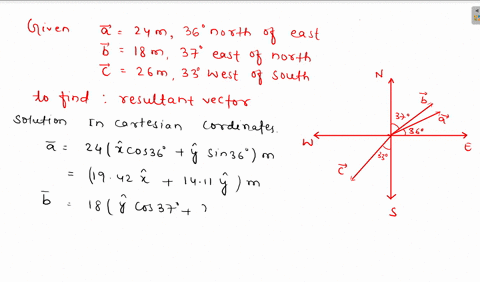 Given a⃗ = 24m, 36° north of east
b⃗ = 18m, 37° east of north
c⃗ = 26m, 33° west of south
to find : resultant vector
Solution In Cartesian Cordenates.
a⃗ = 24(x̂cos36° + ŷ sin36°)m
= (19.42 x̂ + 14.11 ŷ)m
b⃗ = 18(ŷ cos37° +
N
b⃗
37°
a⃗
36°
W
E
33°
c⃗
S